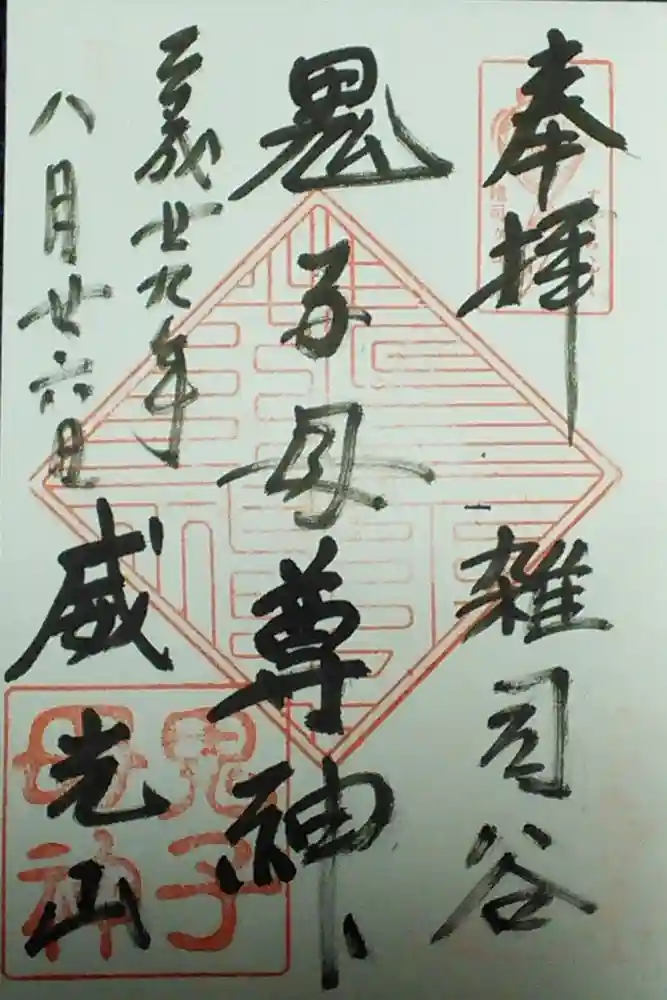 奉拝
雑司谷
鬼子母尊神
平成廿九年
八月廿六日
威光山
鬼子
母神